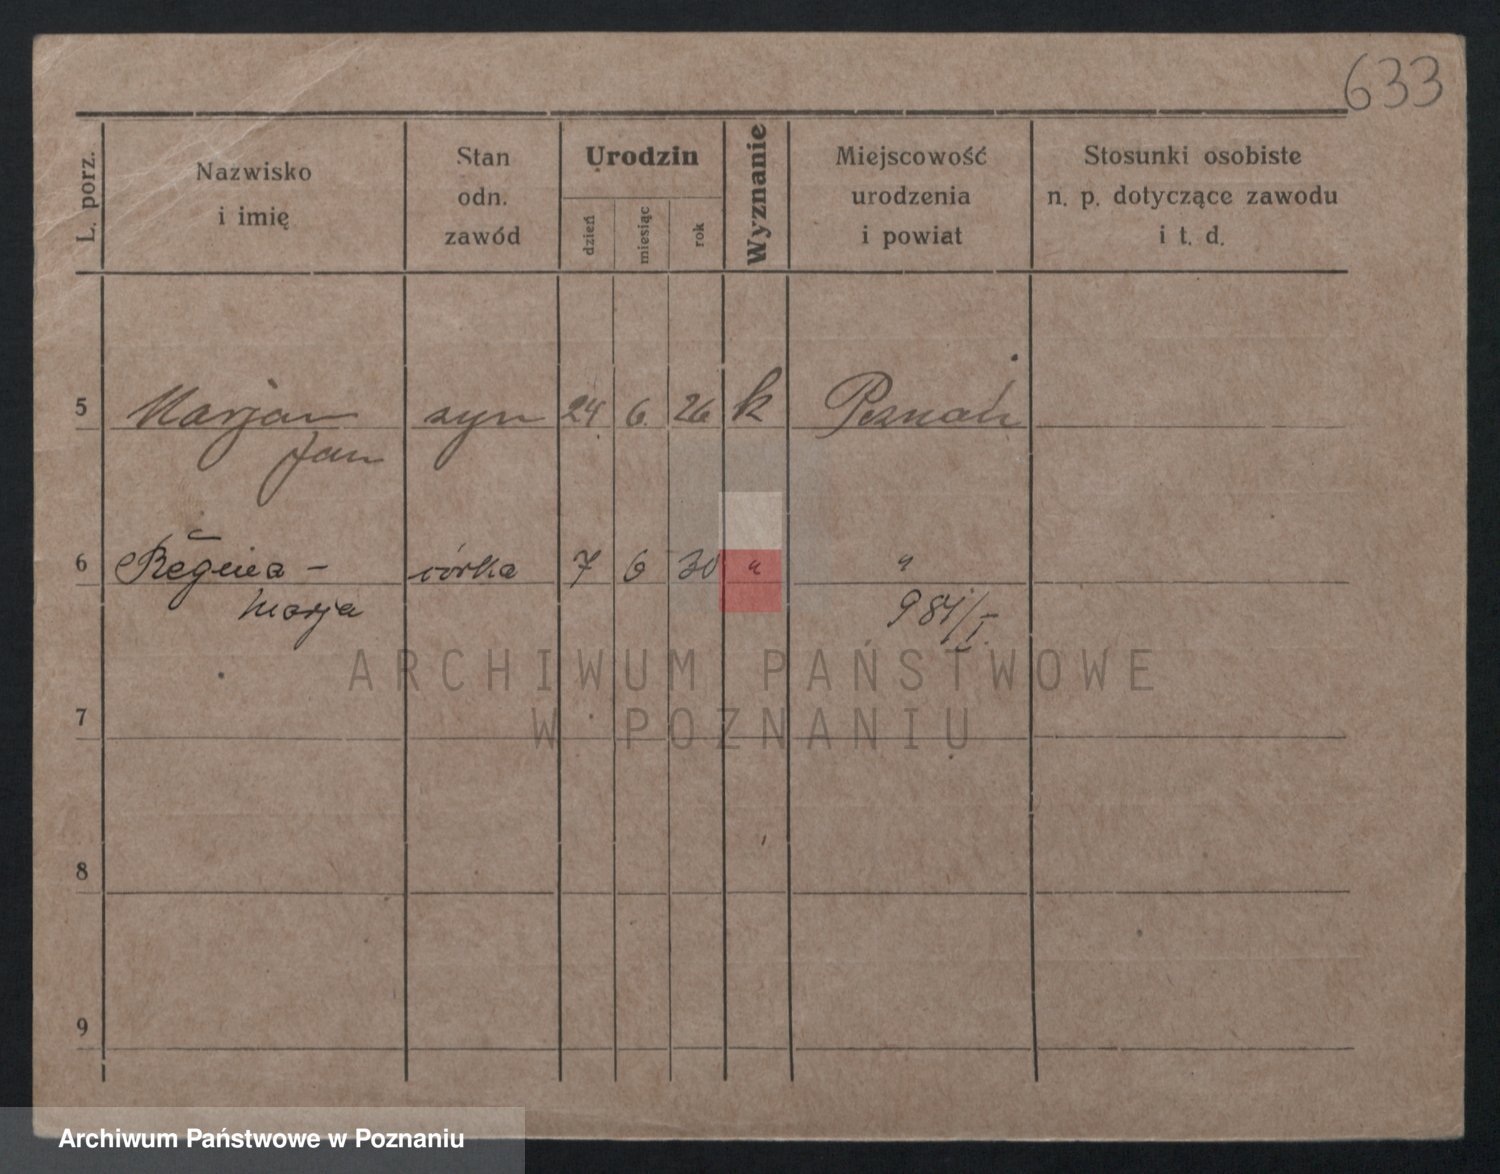 633
L. porz.
Nazwisko
i imię
Stan
odn.
zawód
Urodzin
dzień
miesiąc
rok
Wyznanie
Miejscowość
urodzenia
i powiat
Stosunki osobiste
n. p. dotyczące zawodu
i t. d.
5 Marjan syn 24 6. 26 k Poznań
Jan
6 Regina - córka 7 6 30 " "
Marja
984/I.
ARCHIWUM PAŃSTWOWE
W POZNANIU
7
8
9
Archiwum Państwowe w Poznaniu